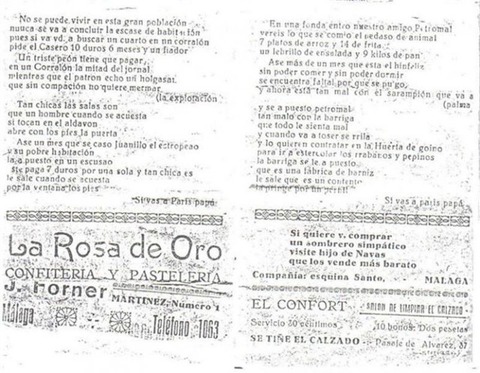 No se puede vivir en esta gran población
nuuca se va a concluir la escase de habitción
pues si va vd. a buscar un cuarto en un corralón
pide el Casero 10 duros 6 meses y un fiador
Un triste peón tiene que pagar
en un Corralón la mitad del jornal
mientras que el patron echo un holgasas
que sin compación no quiere mermar
(la explotación
Tan chicas las salas son
que un hombre cuando se acuesta
si tocan en el aldavon
abre con los pies la puerta
Ase un mes que se caso Juanillo el estropeao
y su pobre habitación
la a puesto en un escusao
sie paga 7 duros por una sola y tan chica es
le sale cuando se acuesta
por la ventana los pies
Si vas a Paris papá
La Rosa de Oro
CONFITERÍA Y PASTELERIA
J. Forner
MARTINEZ, Número 1
Málaga
Teléfono 1063
En una fonda entro nuestro amigo Petromal
vereis lo que se comio el pedaso de animal
7 platos de arroz y 14 de frita
un lebrillo de ensalada y 9 kilos de pan
Ase más de un mes que esta el hinfeliz
sin poder comer y sin poder dormir
se encuentra fatal por que se pu go
y ahora está tan mal con el sarampión que va a
(palma
y se a puesto petromal
tan malo con la barriga
que todo le sienta mal
y cuando va a toser se rrila
y lo quieren contratar en la Huerta de goino
para ir a estercolar los rrabanos y pepinos
la barriga se le a puesto
que es una fábrica de barniz
le sale que es un contento
Si vas a paris papá
Si quiere v. comprar
un sombrero simpático
visite hijo de Navas
que los vende más barato
Compañia: esquina Santo, MALAGA
EL CONFORT
SALON DE LIMPIAR EL CALZADO
Servicio 30 céntimos
10 bonos: Dos pesetas
SE TIÑE EL CALZADO
Pasaje de Alvarez, 37